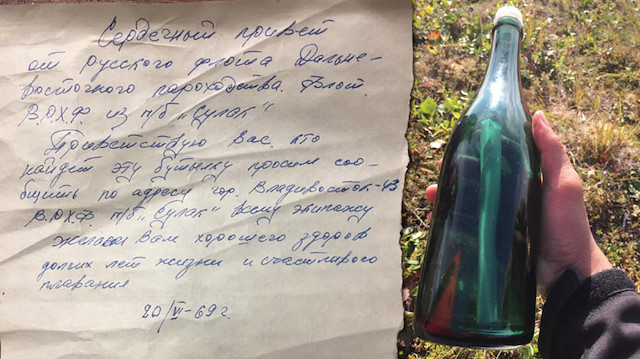 Сердечный привет
от русского флота Дальне-
восточного пароходства. Флот.
В.Р.Х.Ф из п/б „Сулак"
Приветствую Вас, кто
найдет эту бутылку просим соо-
бщить по адресу гор. Владивосток-43
В.Р.Х.Ф. п/б „Сулак" всему экипажу
желаем Вам хорошего здоров
долгих лет жизни и счастливого
плавания
20/VI-69г.